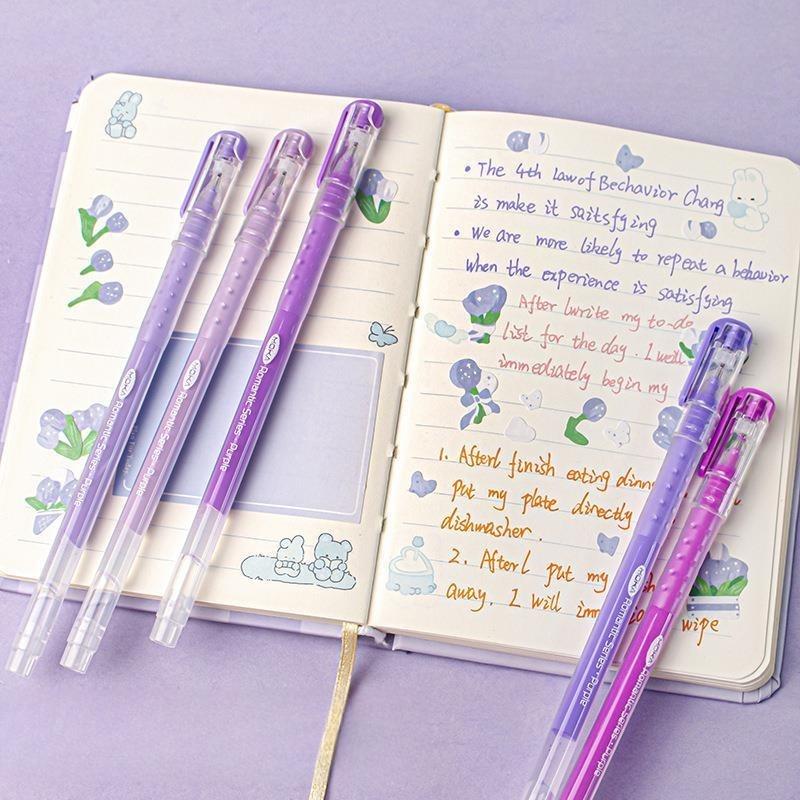 • The 4th law of Bechavior Chang
is make it saitsfying
• we are more likely to repeat a behavior
when the experience is satisfying
After lwrite my to-do
list for the day. I will
immediately begin my
1. Afterl finish eating dinn
put my plate directly
dishwasher.
2. Afterl put my
away. I will imm wipe
MOKA Romantic Series·Purple
MOKA Romantic Series·Purple
MOKA Romantic Series·Purple
MOKA Romantic Series·Purple
MOKA Romantic Series·Purple